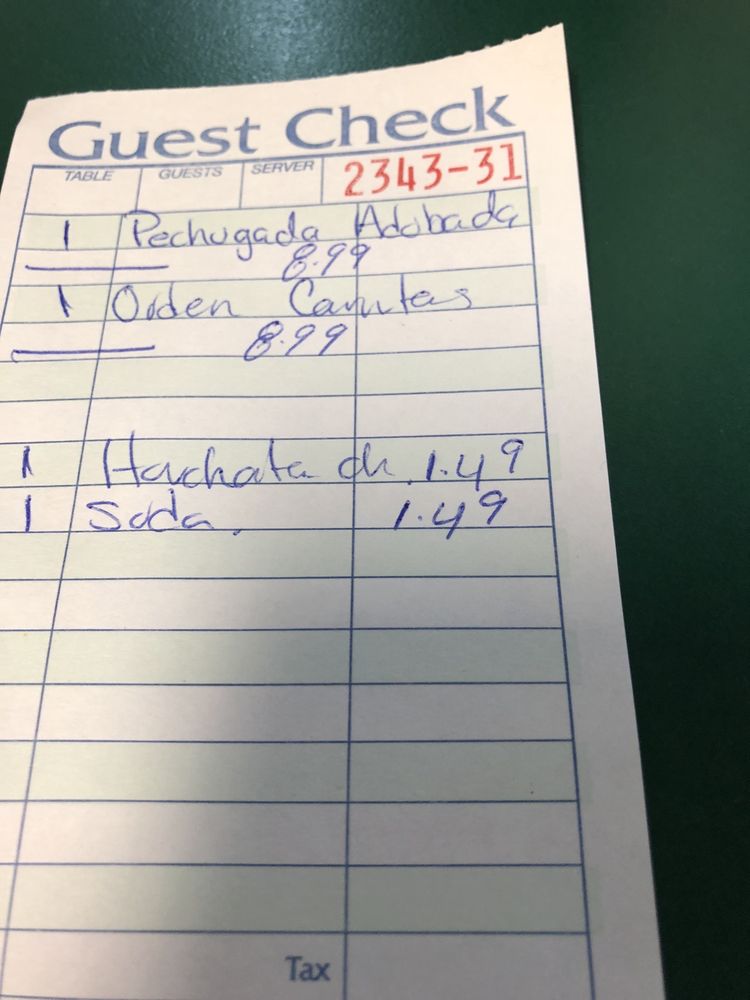 Guest Check
TABLE GUESTS SERVER 2343-31
1 Pechugada Adobada
8.99
1 Orden Carnitas
8.99
1 Horchata ch. 1.49
1 Soda. 1.49
Tax